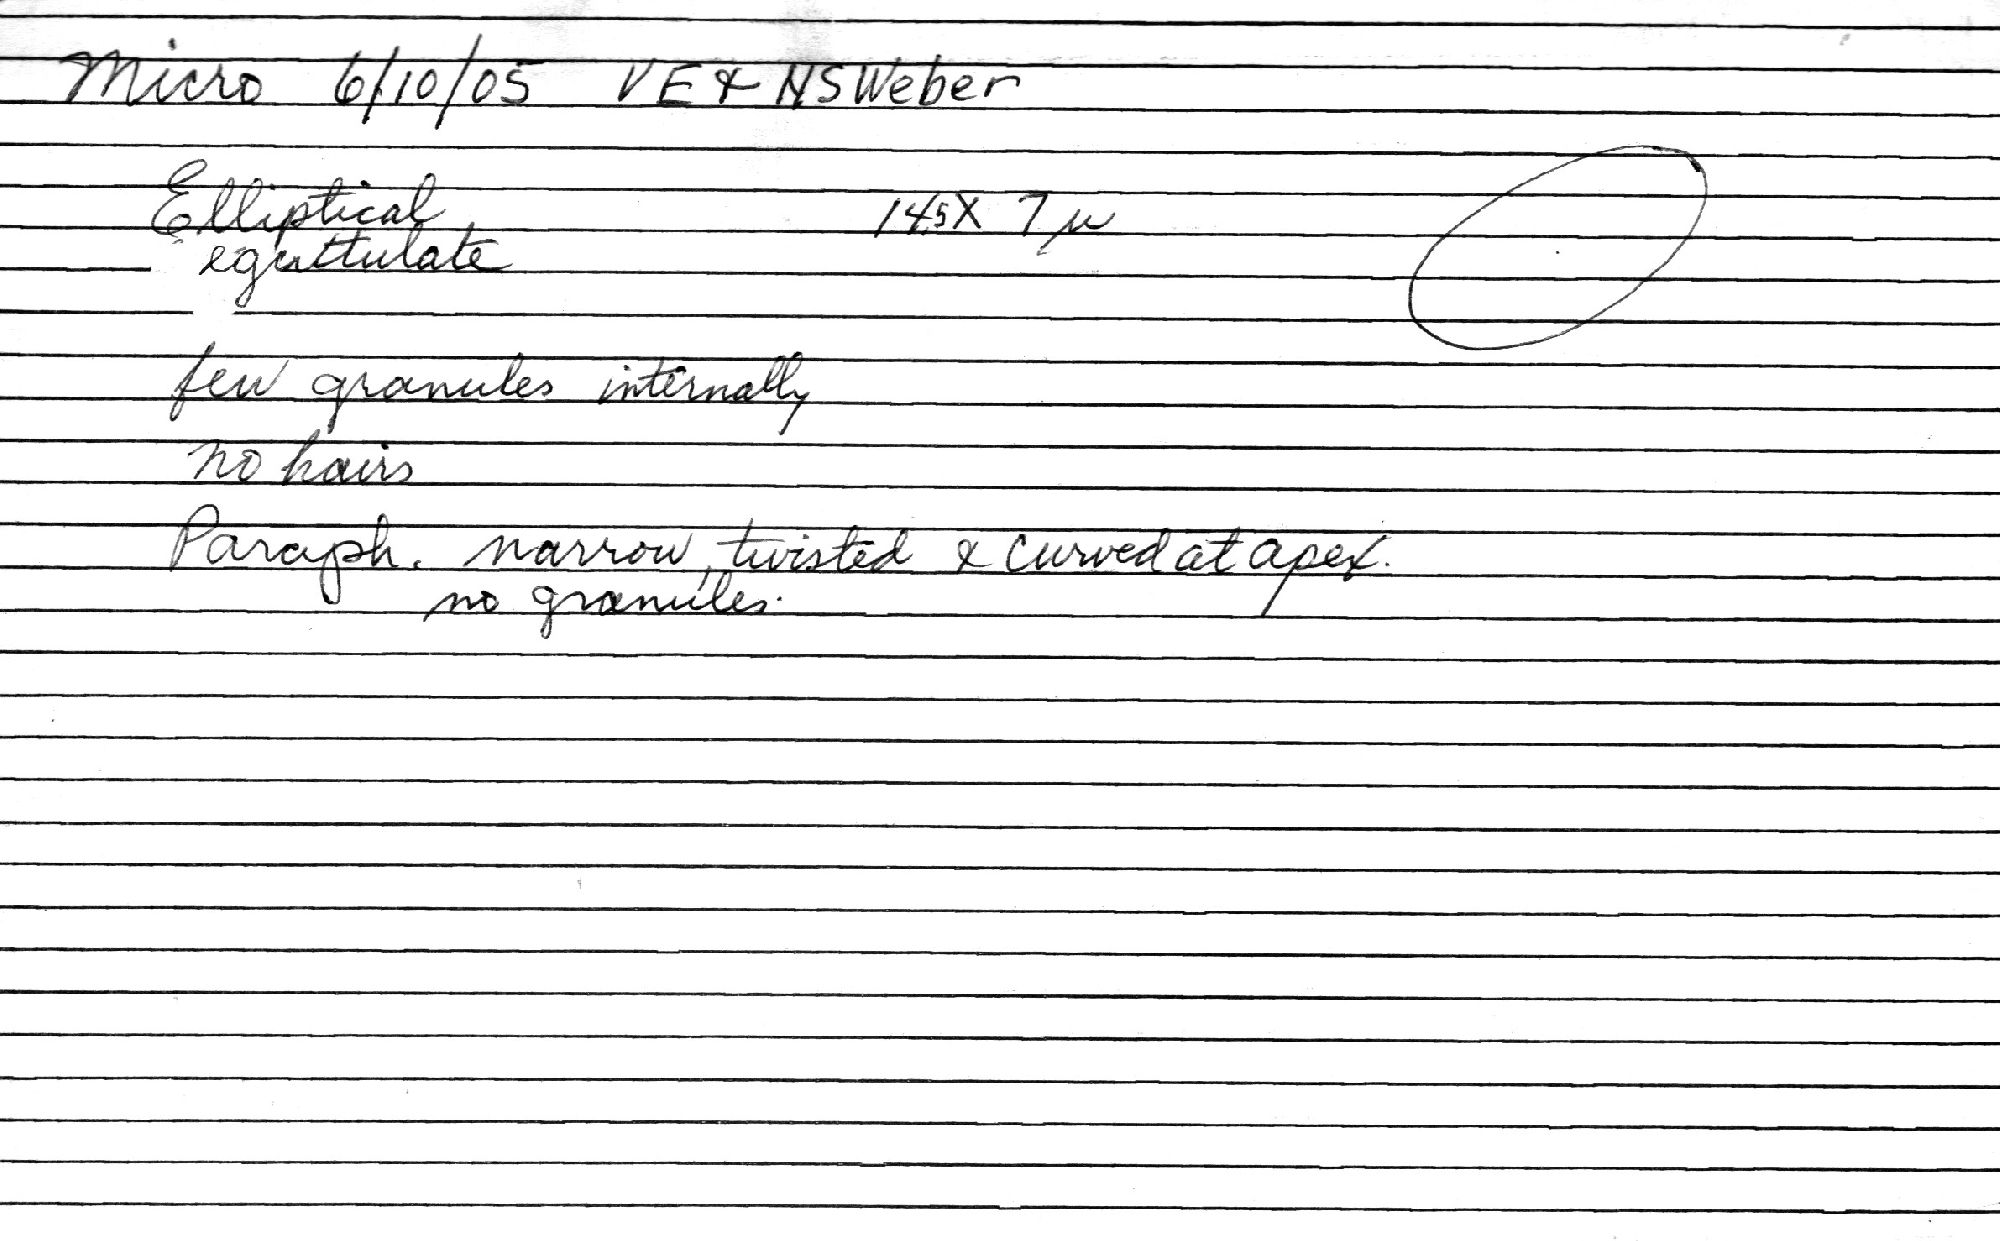 Micro 6/10/05 VE & NS Weber
Elliptical 14.5 X 7 µ
eguttulate
few granules internally
no hairs
Paraph. narrow, twisted & curved at apex.
no granules.